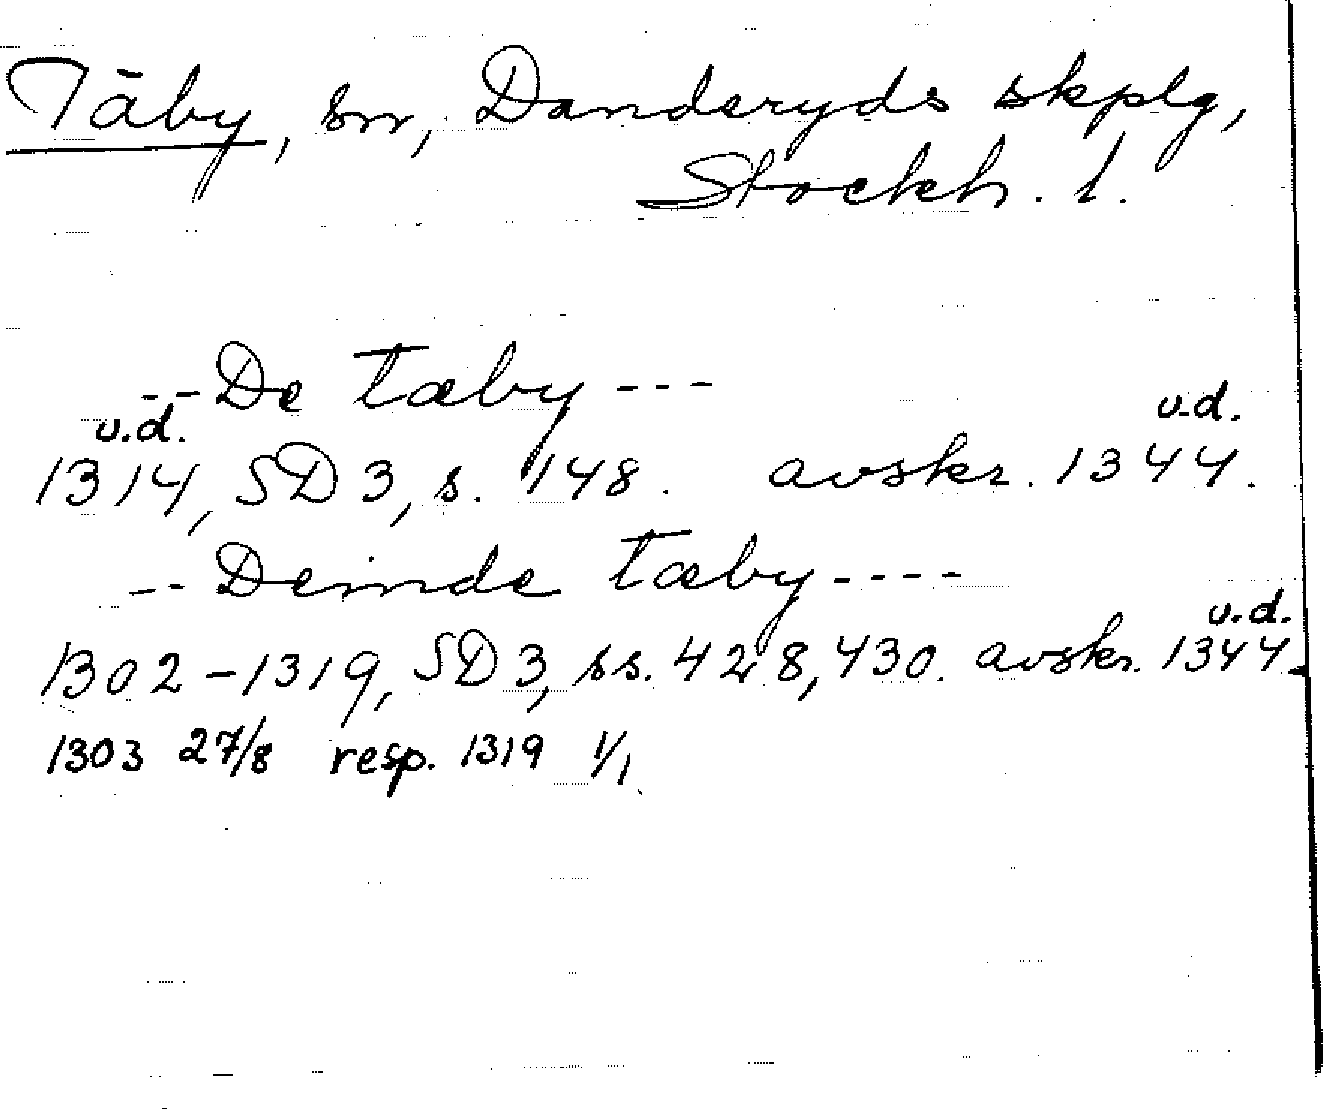 Täby, sn, Danderyds skplg,
Stockh. l.
-- De tæby ---
u.d. u.d.
1314, SD 3, s. 148. avskr. 1344.
-- Deinde tæby ----
u.d.
1302-1319, SD 3, ss. 428, 430. avskr. 1344.
1303 27/8 resp. 1319 1/1